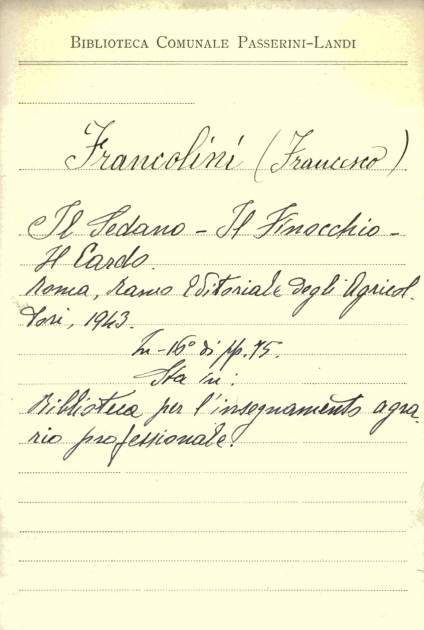 BIBLIOTECA COMUNALE PASSERINI-LANDI
Francolini (Francesco)
Il Sedano - Il Finocchio -
Il Cardo.
Roma, Ramo Editoriale degli Agricol-
tori, 1943.
In-16° di pp. 75.
Sta in:
Biblioteca per l'insegnamento agra-
rio professionale.